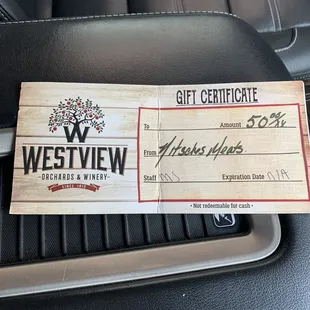 GIFT CERTIFICATE
W
WESTVIEW
ORCHARDS & WINERY
SINCE 1813
To
Amount 50 00/xx
From Nitsches Meats
Staff MJ
Expiration Date N/A
• Not redeemable for cash •